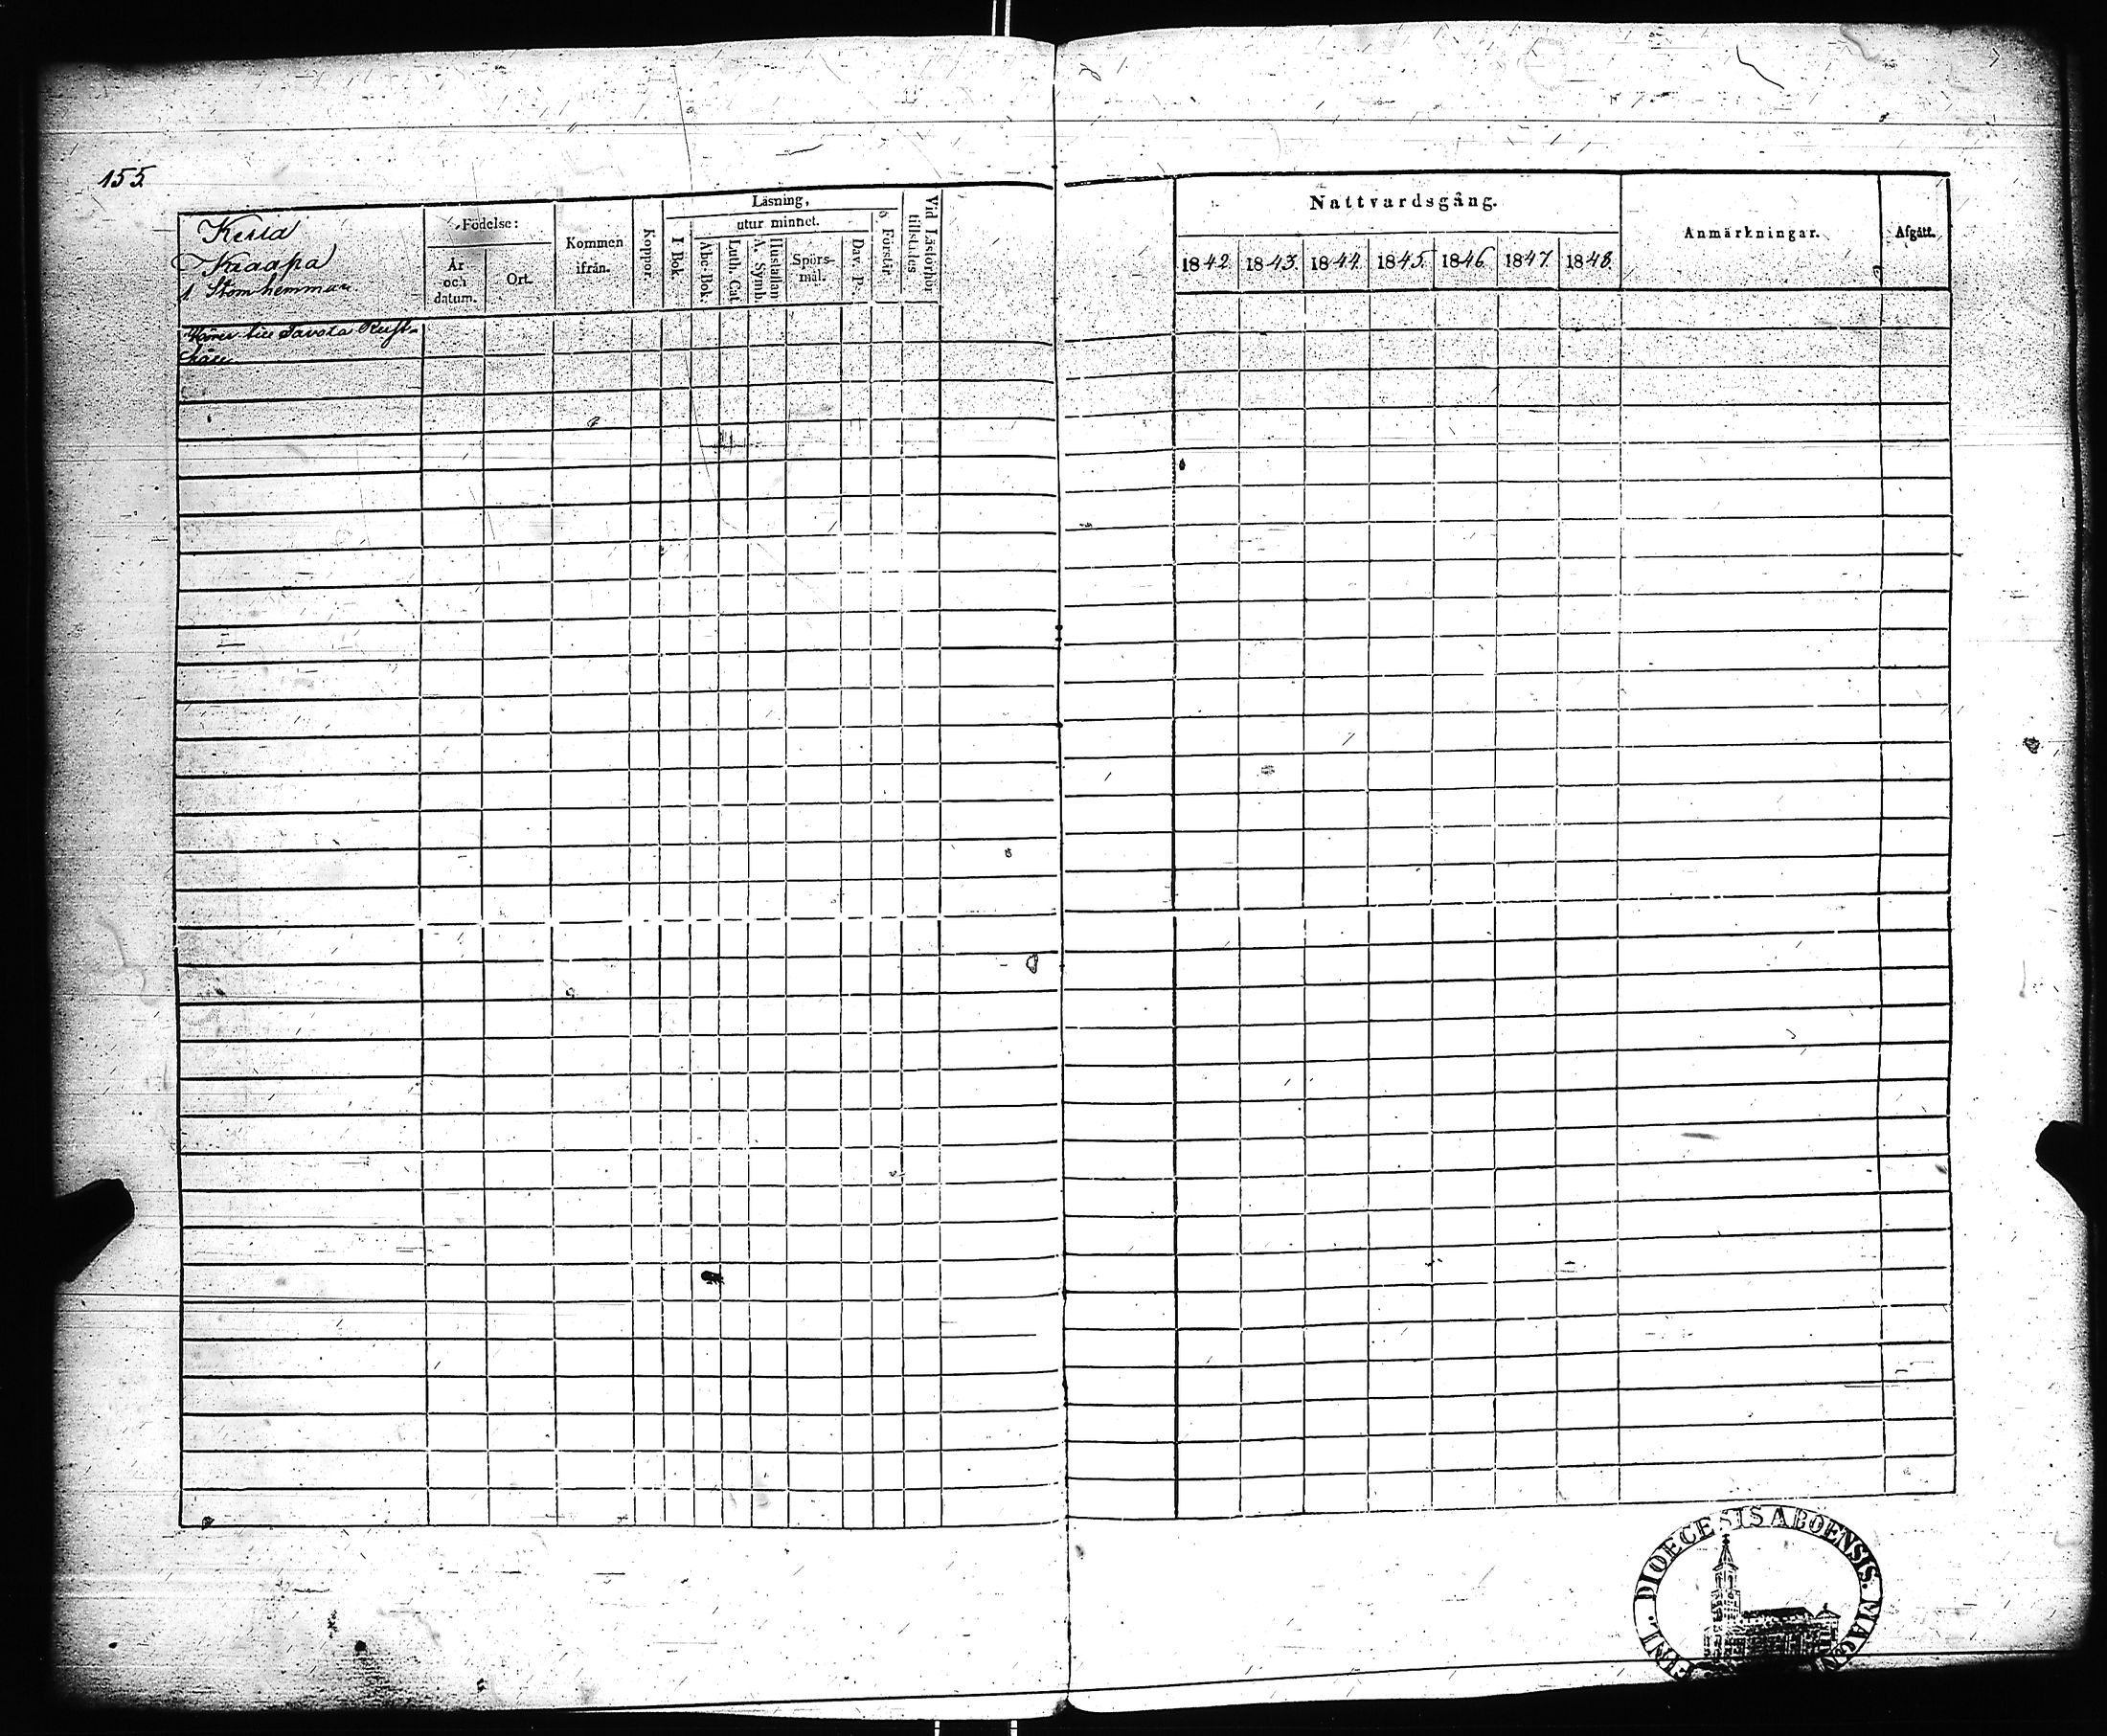 155.
Keria
Knaapa
1 Stomhemman
Födelse:
År och datum.
Ort.
Kommen ifrån.
Koppor.
Läsning,
I Bok.
utur minnet.
Abc-Bok.
Luth. Cat.
Hustaflan
A. Symb.
Spörs-
mål.
Dav. Ps.
Förstår.
Vid Läsförhör
tillstådes
Nattvardsgång.
1842
1843.
1844.
1845.
1846
1847
1848.
Anmärkningar.
Afgått.
Hörer till Savola Rust-
håll
DIOECESIS ABOENSIS. MAGN